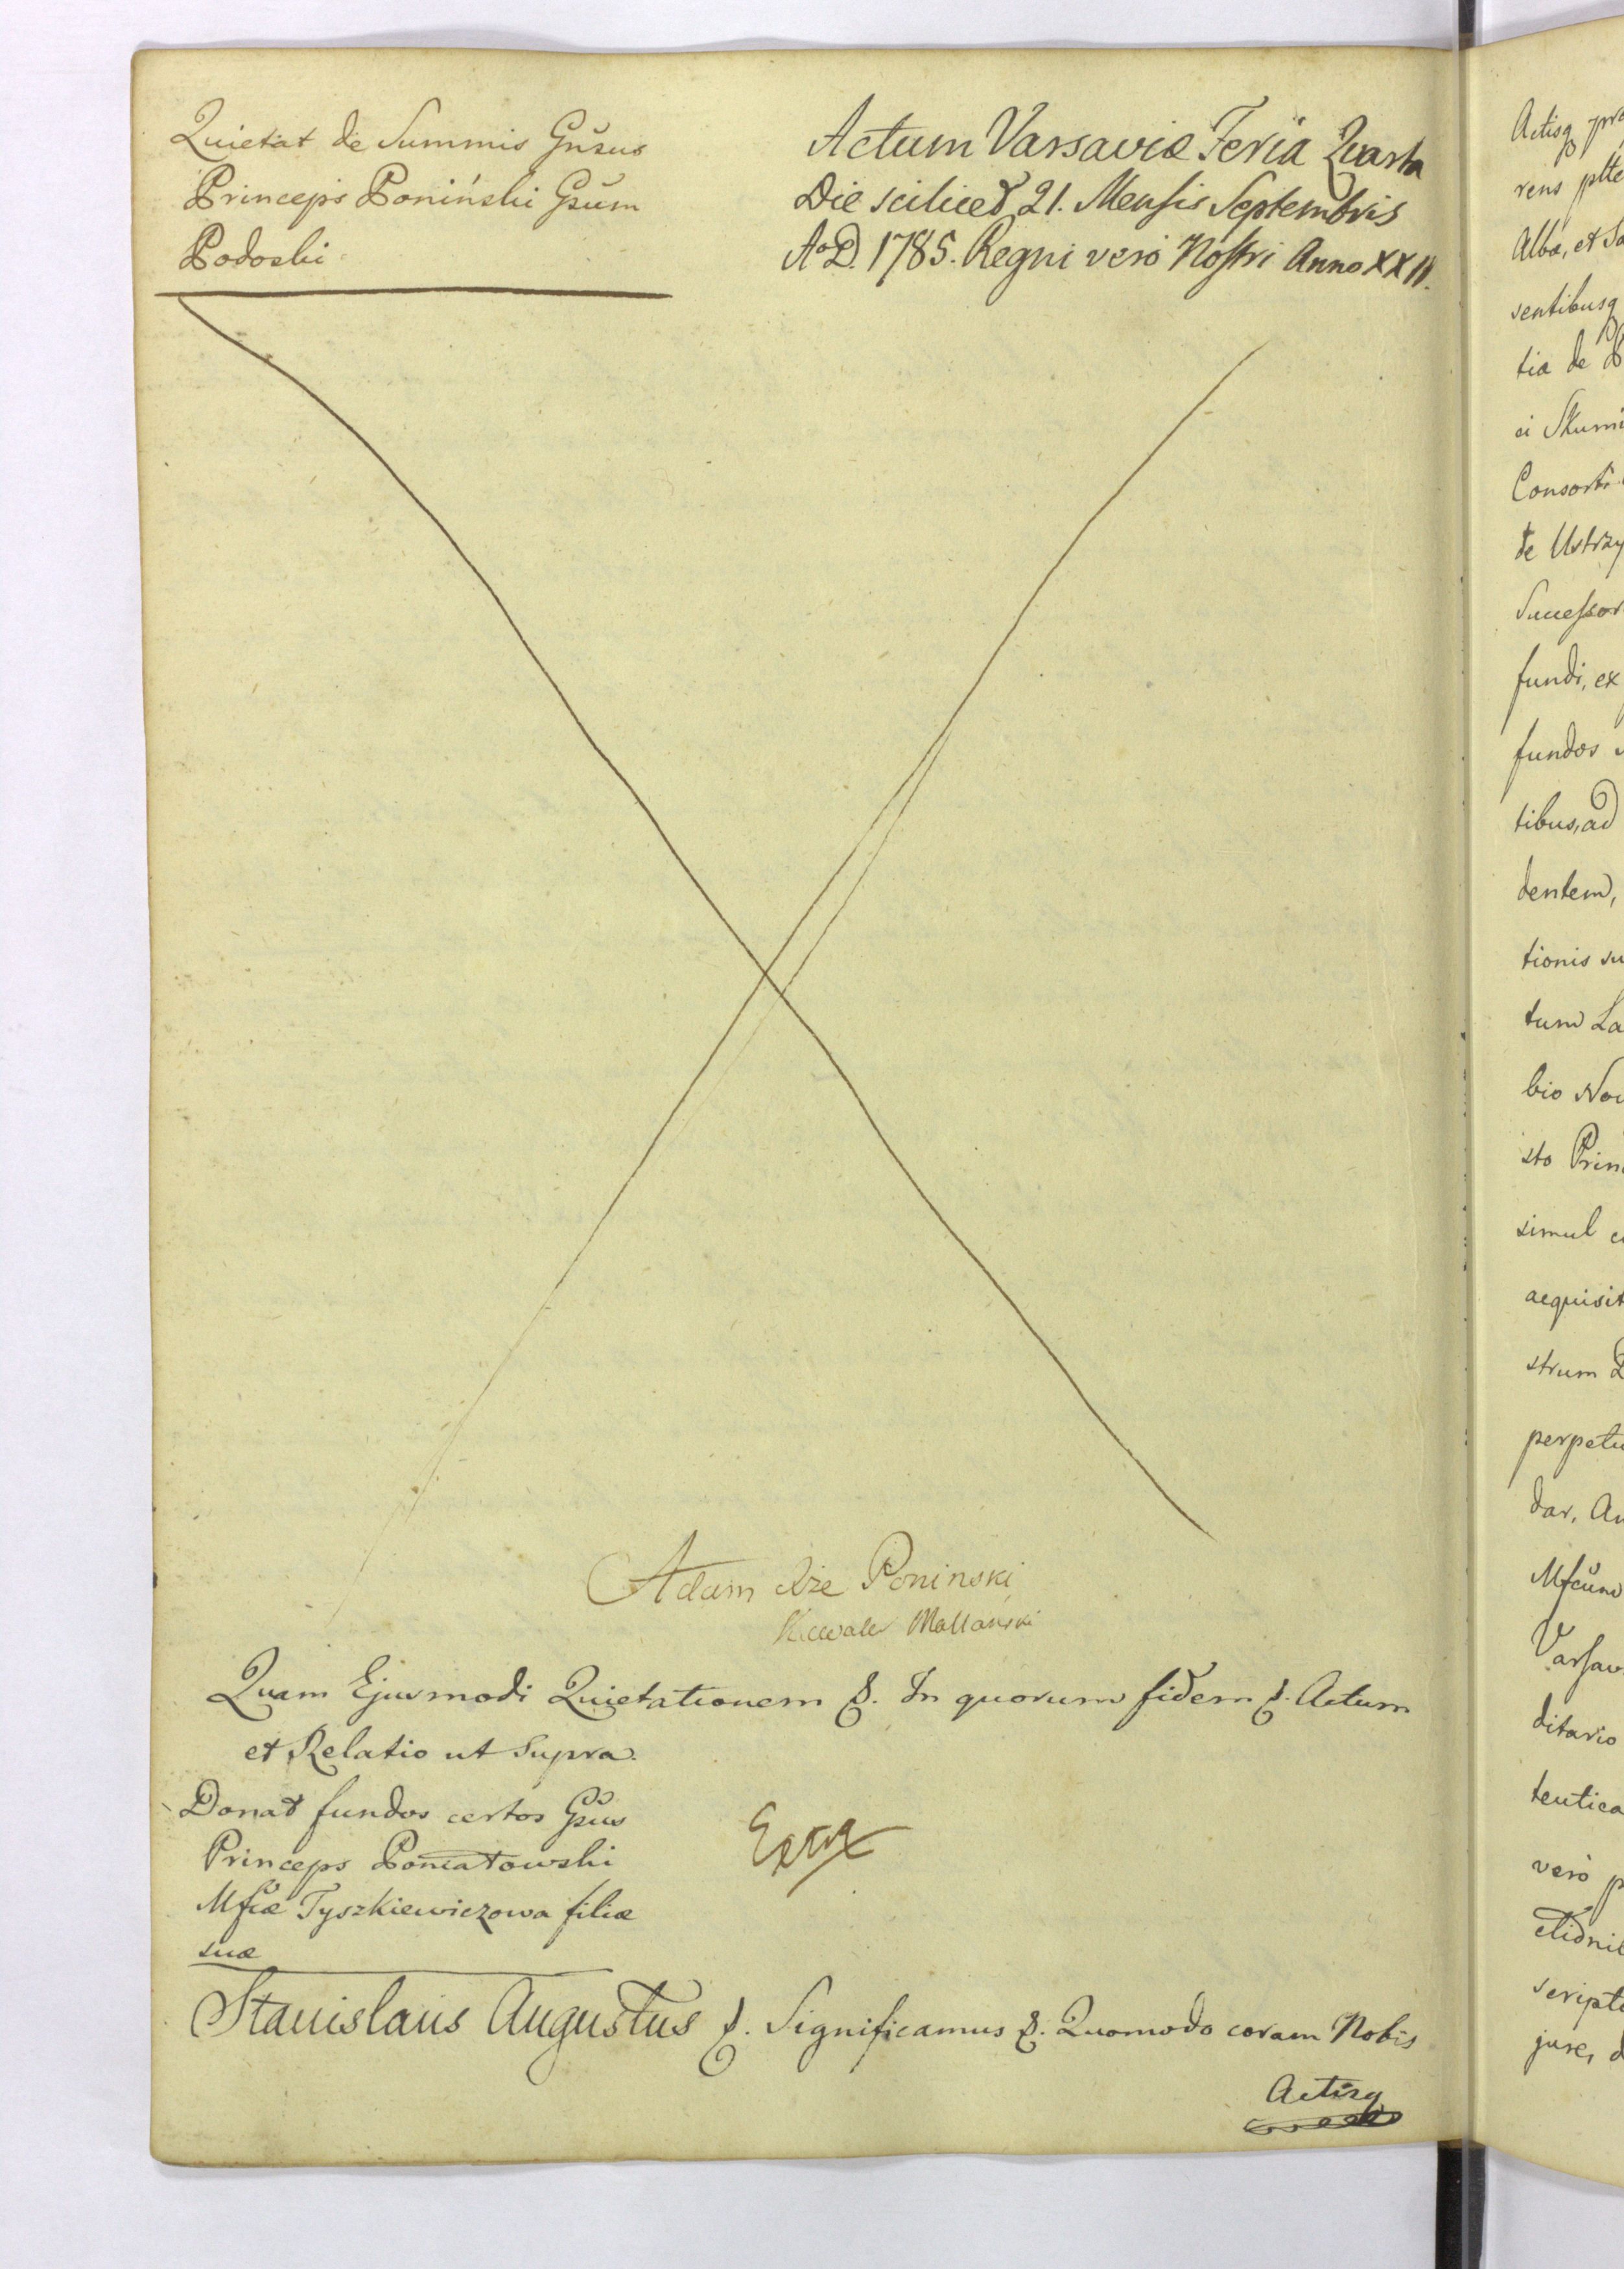 Quietat de Summis Gŭsus
Princeps Poniński Gsŭm
Podoski
Actum Varsaviæ Feria Quarta
Die scilicet 21. Mensis Septembris
AoD. 1785. Regni verò Nostri Anno XXII.
Adam Xże Poninski
Kawaler Maltanski
Quam Ejusmodi Quietationem &. In quorum fidem &. Actum
et Relatio ut supra.
Donat fundos certos Gsŭs
Princeps Poniatowski
Mfcæ Tyszkiewiczowa filiæ
suæ
Extx
Stanislaus Augustus &. Significamus &. Quomodo coram Nobis
Actisq
Actisq
rens
Alba, et
sentibusq
tia de
ei
Consorti
de
Successor
fundi, ex
fundos
tibus, ad
dentem,
tionis
tum
bio
sto
simul
acquisit
strum
perpetu
dar.
Mfcŭm
ditario
tentica
verò
script
jure,